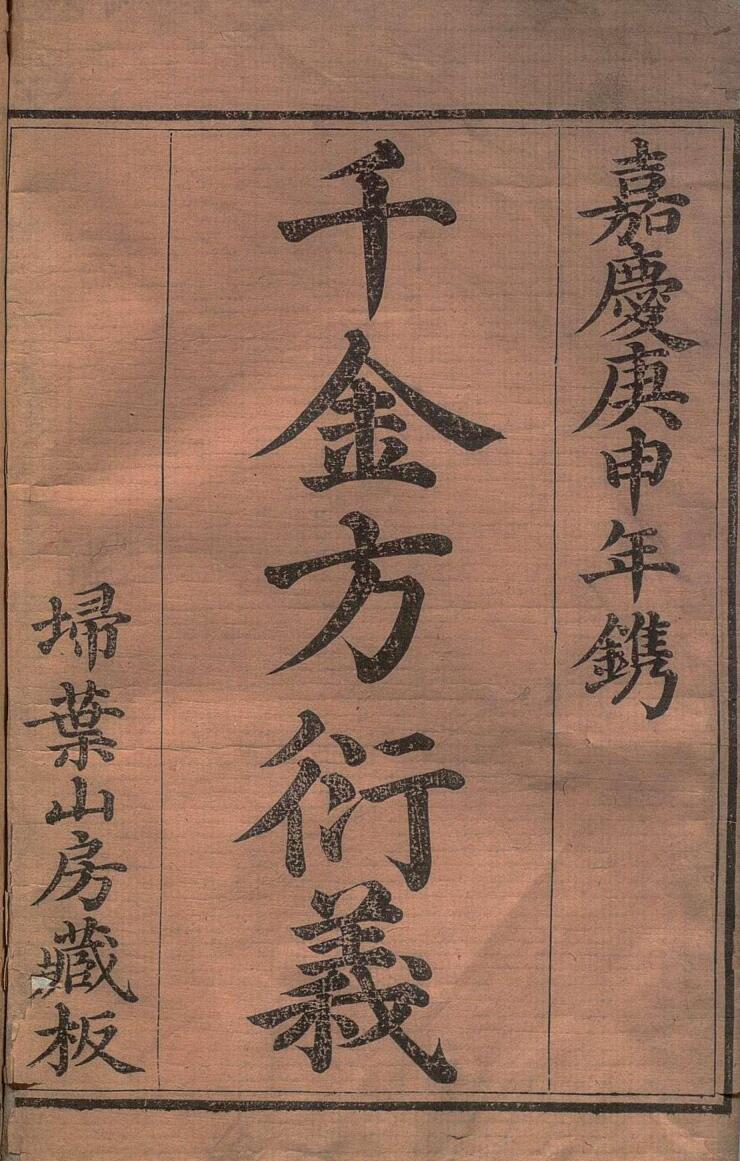 嘉慶庚申年鐫
千金方衍義
埽葉山房藏板